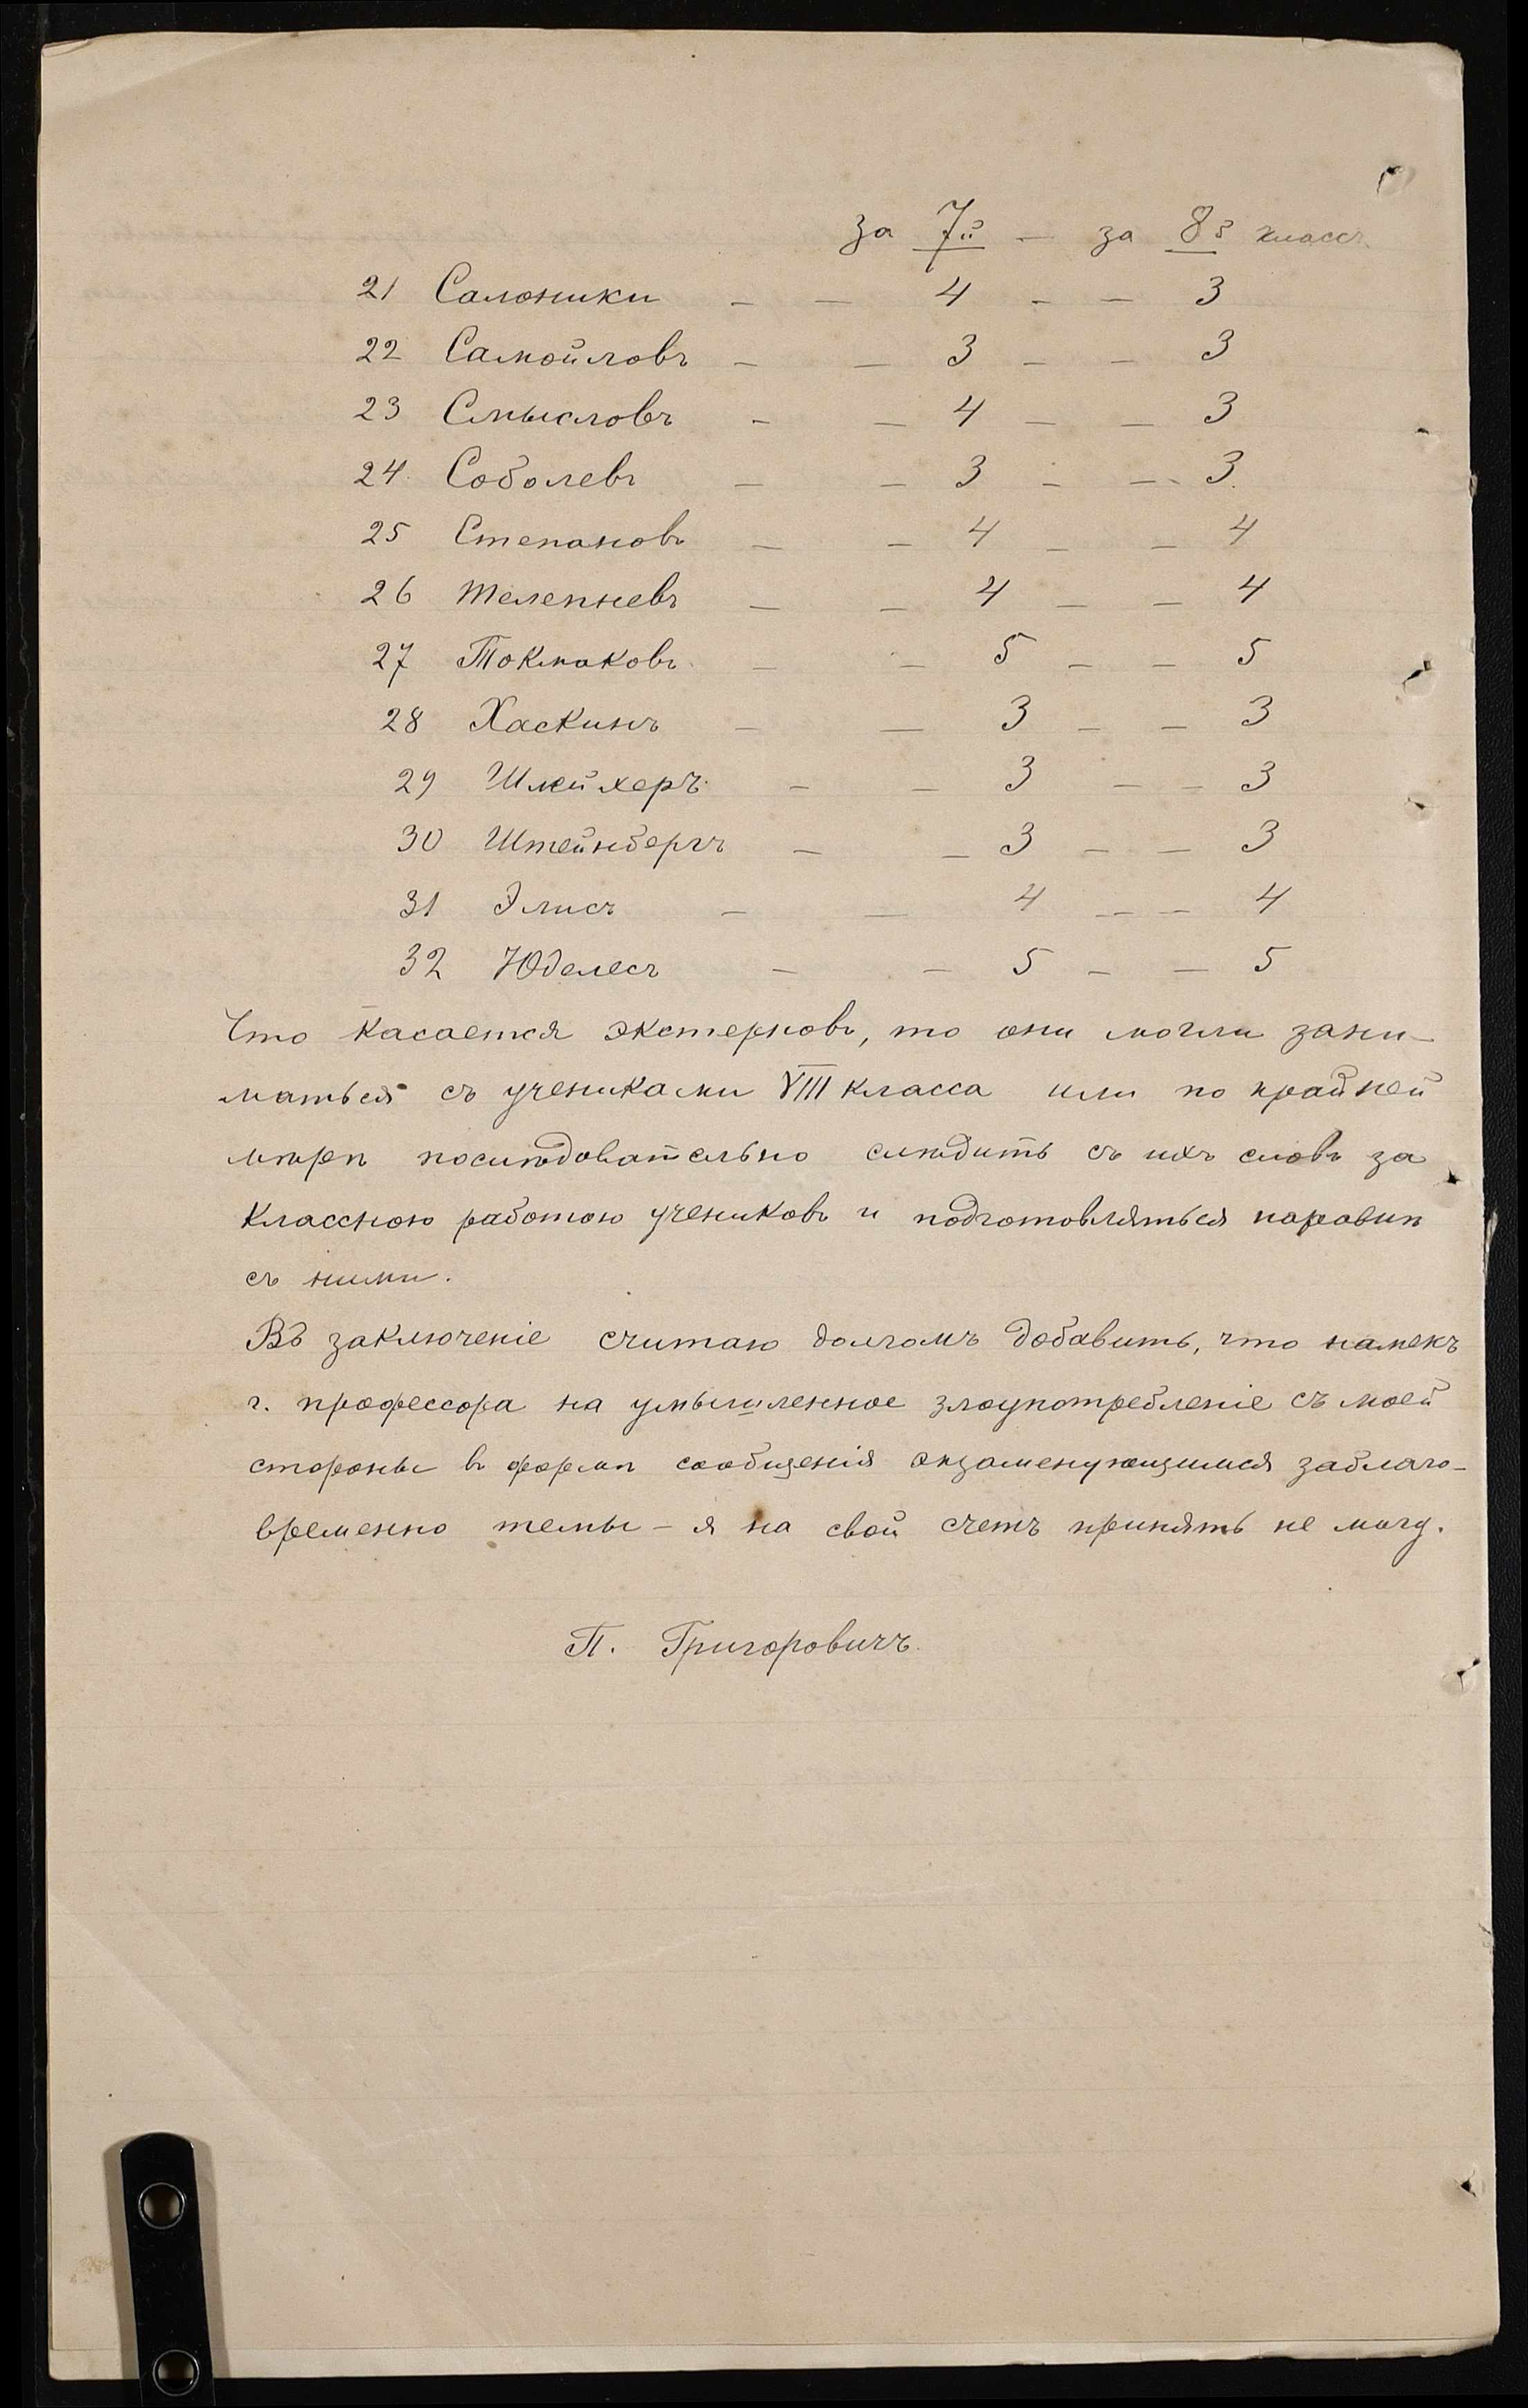 за 7й — за 8й классъ
21 Салоники — — 4 — — 3
22 Самойловъ — — 3 — — 3
23 Смысловъ — — 4 — — 3
24 Соболевъ — — 3 — — 3
25 Степановъ — — 4 — — 4
26 Телепневъ — — 4 — — 4
27 Токмаковъ — — 5 — — 5
28 Хаскинъ — — 3 — — 3
29 Шлейхеръ — — 3 — — 3
30 Штейнбергъ — — 3 — — 3
31 Элисъ — — 4 — — 4
32 Юделесъ — — 5 — — 5
Что касается экстерновъ, то они могли зани-
маться съ учениками VIII класса или по крайней
мѣрѣ послѣдовательно слѣдить съ ихъ словъ за
классною работою учениковъ и подготовляться наравнѣ
съ ними.
Въ заключеніе считаю долгомъ добавить, что намекъ
г. профессора на умышленное злоупотребленіе съ моей
стороны въ формѣ сообщенія экзаменующимся заблаго-
временно темы – я на свой счетъ принять не могу.
П. Григоровичъ.